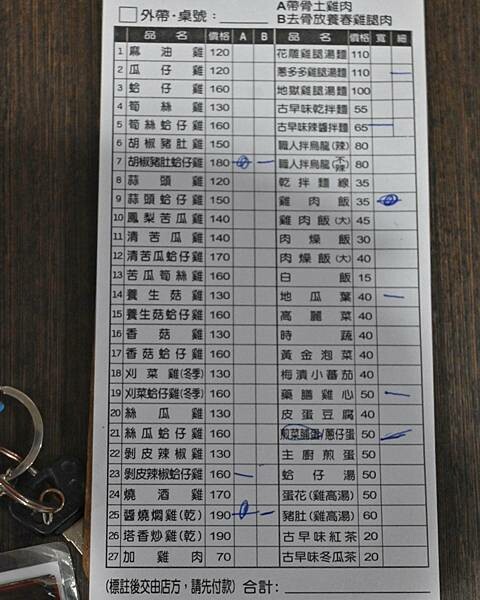 A帶骨土雞肉
外帶·桌號：
B去骨放養春雞腿肉
品名 價格 A B 品名 價格 寬 細
1 麻油雞 120 花雕雞腿湯麵 110
2 瓜仔雞 120 蔥多多雞腿湯麵 110
3 蛤仔雞 160 地獄雞腿湯麵 100
4 筍絲雞 130 古早味乾拌麵 55
5 筍絲蛤仔雞 160 古早味辣醬拌麵 65
6 胡椒豬肚雞 150 職人拌烏龍(辣) 80
7 胡椒豬肚蛤仔雞 180 職人拌烏龍(不辣) 80
8 蒜頭雞 120 乾拌麵線 35
9 蒜頭蛤仔雞 150 雞肉飯 35
10 鳳梨苦瓜雞 140 雞肉飯(大) 45
11 清苦瓜雞 140 肉燥飯 30
12 清苦瓜蛤仔雞 170 肉燥飯(大) 40
13 苦瓜筍絲雞 160 白飯 15
14 養生菇雞 130 地瓜葉 40
15 養生菇蛤仔雞 160 高麗菜 40
16 香菇雞 130 時蔬 40
17 香菇蛤仔雞 160 黃金泡菜 40
18 刈菜雞(冬季) 130 梅漬小蕃茄 40
19 刈菜蛤仔雞(冬季) 160 藥膳雞心 50
20 絲瓜雞 130 皮蛋豆腐 40
21 絲瓜蛤仔雞 160 煎菜脯蛋/蔥仔蛋 50
22 剝皮辣椒雞 130 主廚煎蛋 50
23 剝皮辣椒蛤仔雞 160 蛤仔湯 50
24 燒酒雞 170 蛋花(雞高湯) 50
25 醬燒燜雞(乾) 190 豬肚(雞高湯) 60
26 塔香炒雞(乾) 190 古早味紅茶 20
27 加雞肉 70 古早味冬瓜茶 20
(標註後交由店方，請先付款) 合計：